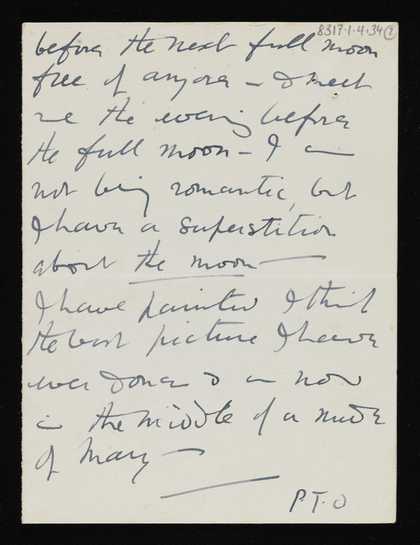 8317.1.4.34
before the next full moon
free of anyone — & meet
me the evening before
the full moon — I am
not being romantic, but
I have a superstition
about the moon —
I have painted I think
the best picture I have
ever done & am now
in the middle of a nude
of Mary —
P.T.O